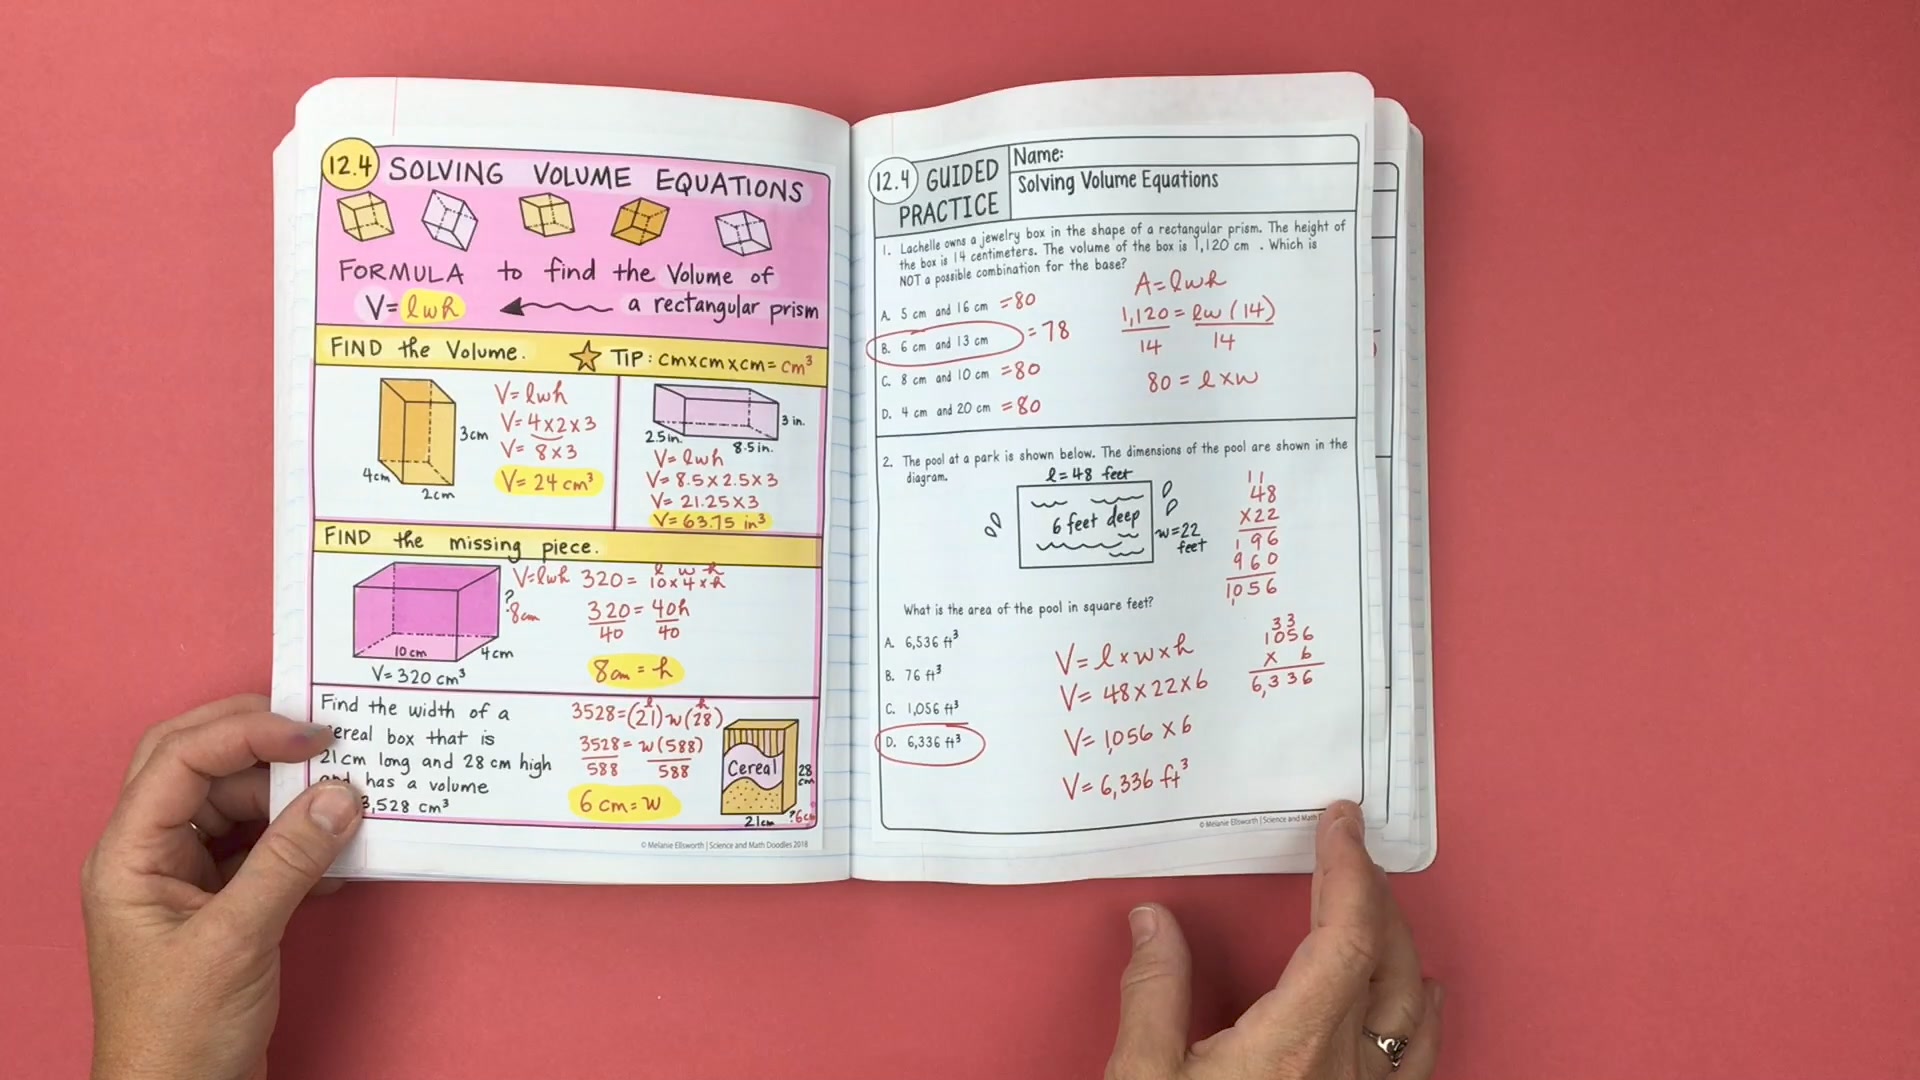 12.4 SOLVING VOLUME EQUATIONS
FORMULA to find the Volume of
V=lwh a rectangular prism
FIND the Volume. TIP: cm×cm×cm=cm³
3cm
4cm
2cm
V=lwh
V=4×2×3
V= 8×3
V=24 cm³
3 in.
2.5in.
8.5in.
V=lwh
V=8.5×2.5×3
V=21.25×3
V=63.75 in³
FIND the missing piece.
?
8cm
10cm
4cm
V=320 cm³
V=lwh 320= 10×4×h
l w h
320 = 40h
40 40
8cm = h
Find the width of a
ereal box that is
21cm long and 28cm high
and has a volume
3,528 cm³
l h
3528=(21)w(28)
3528=w(588)
588 588
6cm=w
Cereal
28
cm
21cm
?6c
© Melanie Ellsworth | Science and Math Doodles 2018
12.4 GUIDED
PRACTICE
Name:
Solving Volume Equations
1. Lachelle owns a jewelry box in the shape of a rectangular prism. The height of
the box is 14 centimeters. The volume of the box is 1,120 cm . Which is
NOT a possible combination for the base?
A. 5 cm and 16 cm =80
B. 6 cm and 13 cm =78
C. 8 cm and 10 cm =80
D. 4 cm and 20 cm =80
A=lwh
1,120=lw(14)
14 14
80=l×w
2. The pool at a park is shown below. The dimensions of the pool are shown in the
diagram.
l=48 feet
6 feet deep
w=22
feet
11
48
×22
196
960
1056
What is the area of the pool in square feet?
A. 6,536 ft³
B. 76 ft³
C. 1,056 ft³
D. 6,336 ft³
V=l×w×h
V=48×22×6
V=1,056×6
V=6,336 ft³
33
1056
× 6
6,336
© Melanie Ellsworth | Science and Math